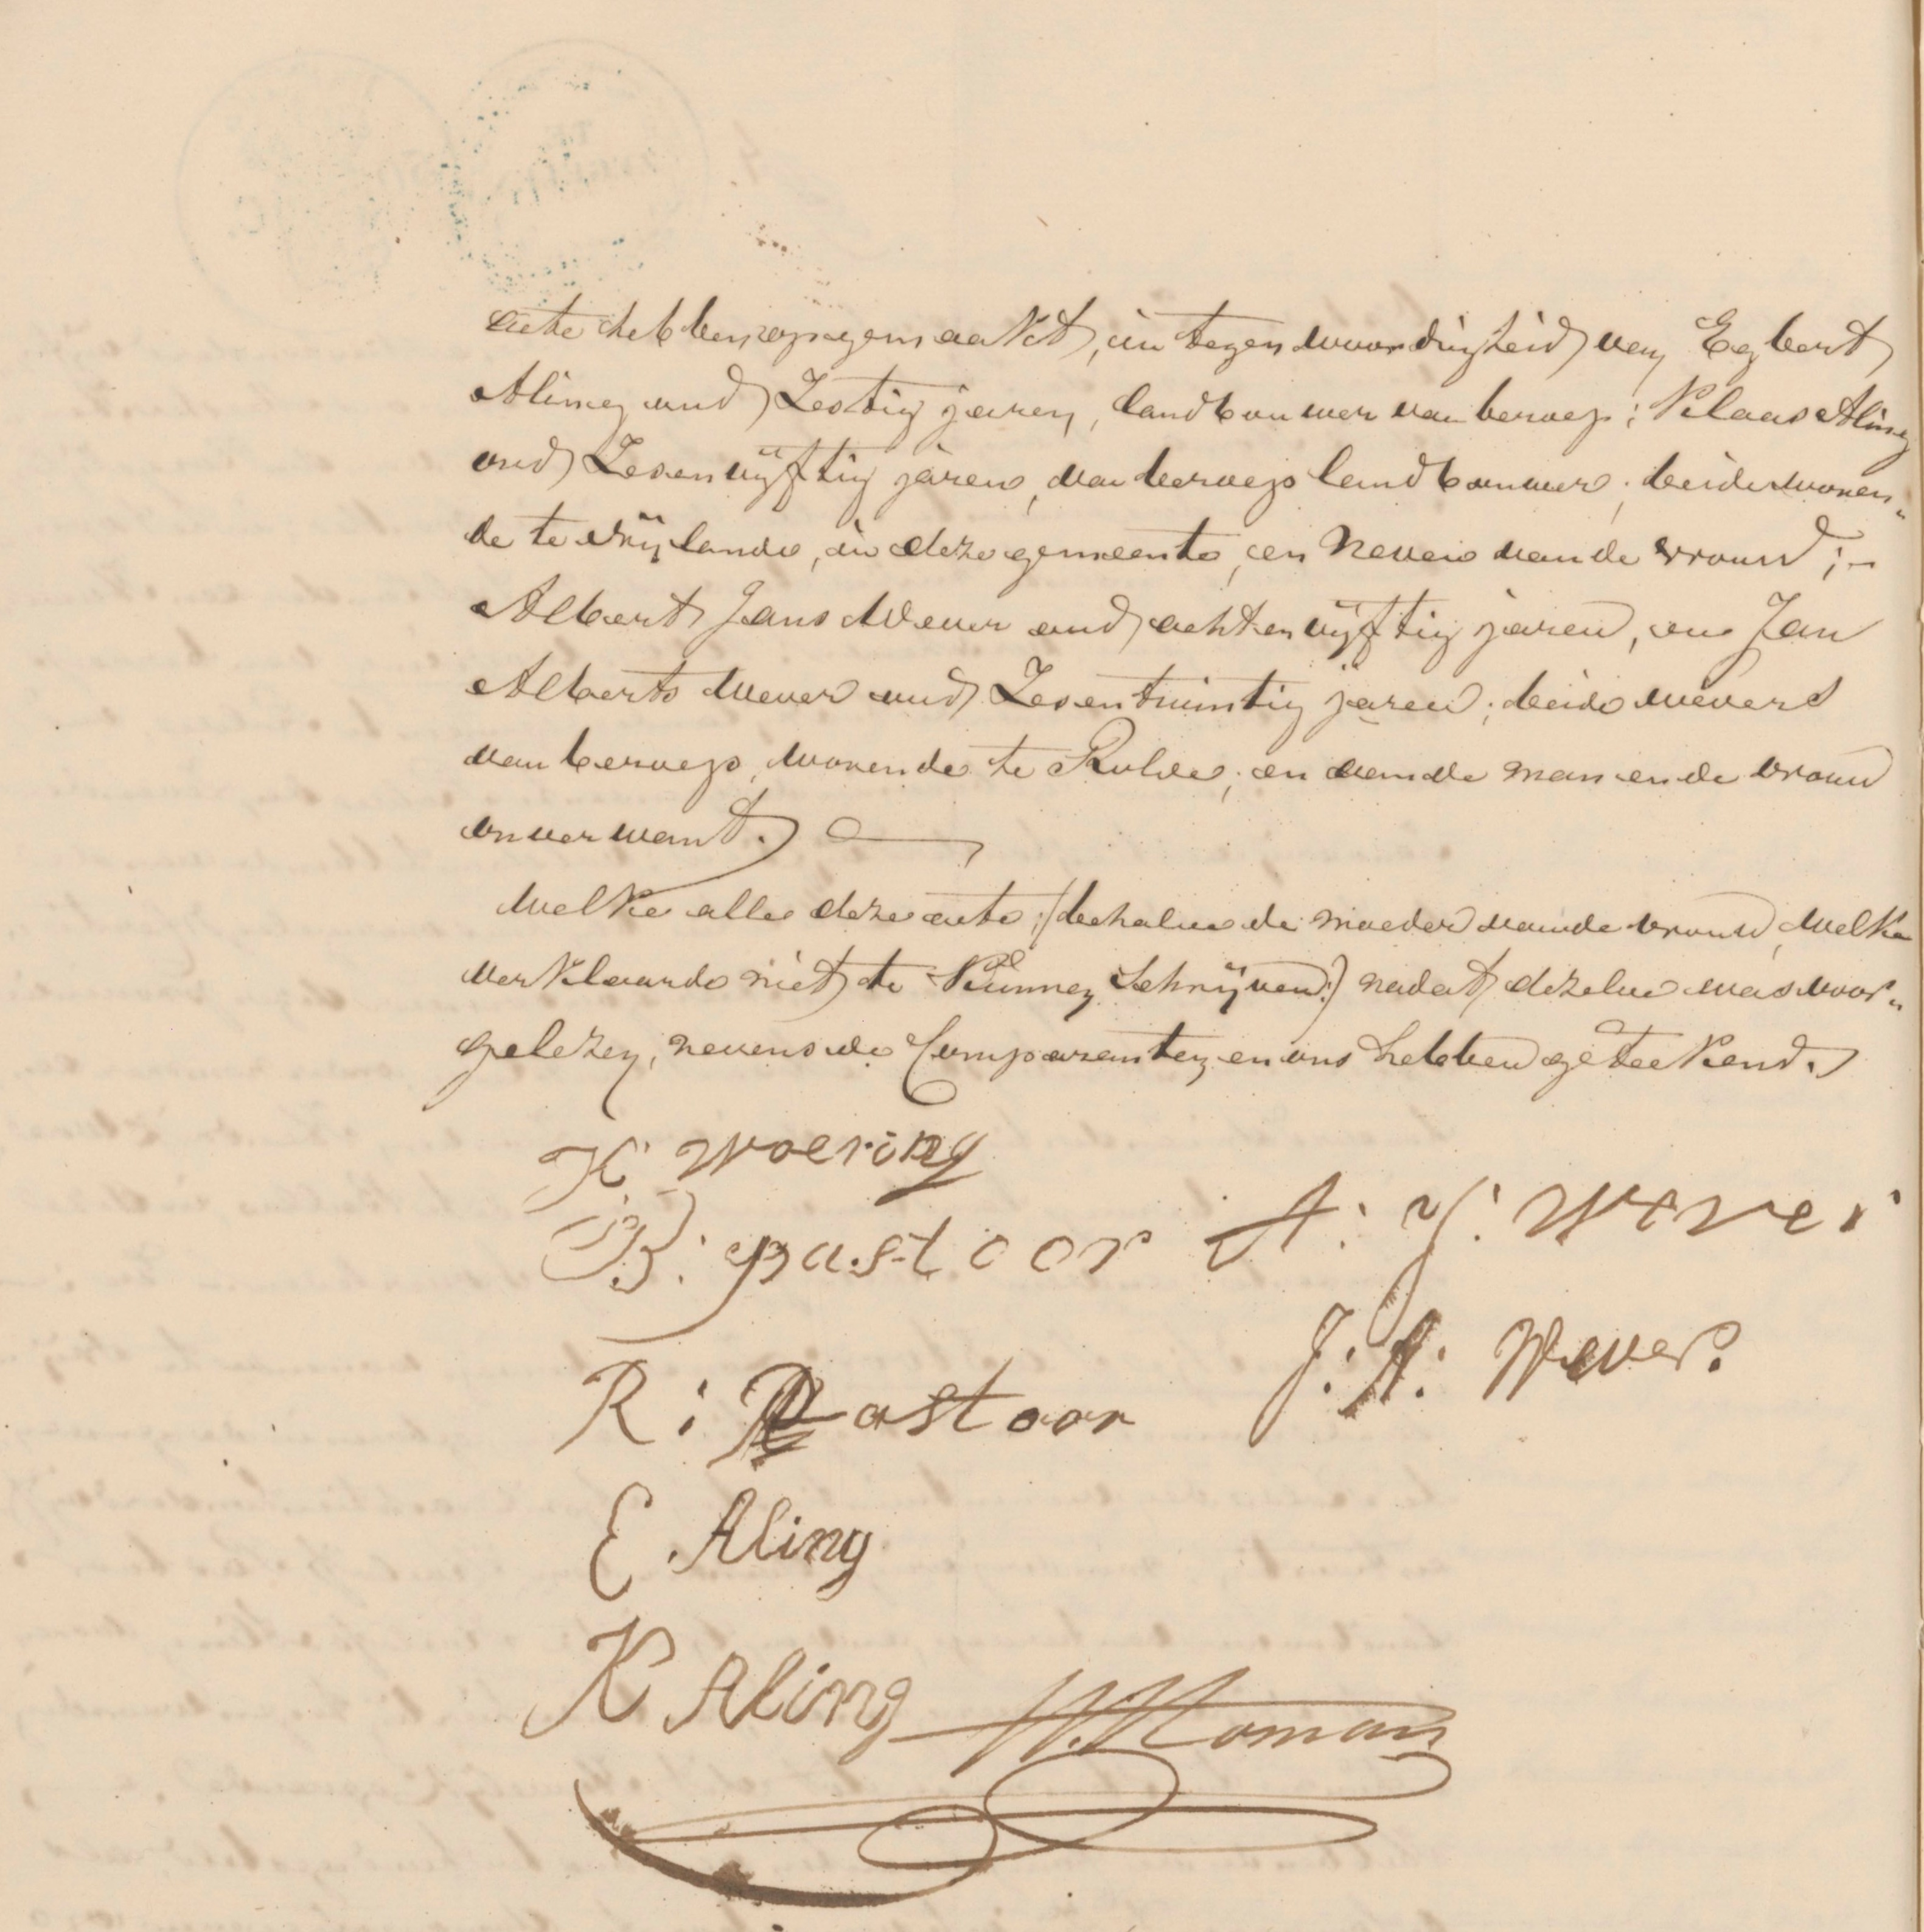 acte hebben opgemaakt, in tegenwoordigheid van Egbert
Aling oud Zestig jaren, landbouwer van beroep; Klaas Aling
oud Zesenvijftig jaren, van beroep landbouwer, beide wonen„
de te Nijlande, in deze gemeente, en neven van de vrouw;-
Albert Jans Wever oud achtenvijftig jaren, en Jan
Alberts Wever oud Zesentwintig jaren; beide wevers
van beroep, wonende te Rolde, en van de man en de vrouw
onverwant.
Welke alle deze acte, (behalve de moeder van de vrouw, welke
verklaarde niet te kunnen Schrijven:) nadat dezelve was voor„
gelezen, nevens de Comparanten en ons hebben geteekend.
K: Woering
B: pastoor A: J: Wever
R: Pastoor J: A: Wever.
E. Aling
K Aling Homan